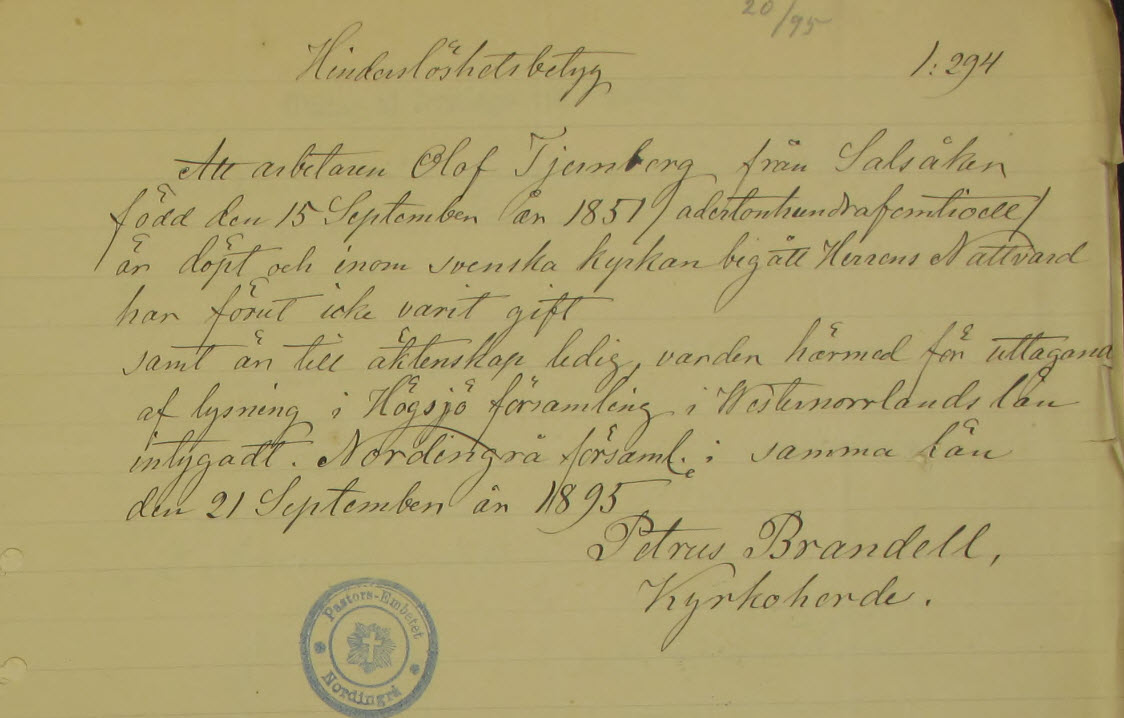 20/95
Hinderslöshetsbetyg 1:294
Att arbetaren Olof Tjernberg från Salsåker
född den 15 September år 1851 /adertonhundrafemtioett/
är döpt och inom svenska kyrkan begått Herrens Nattvard
har förut icke varit gift
samt är till äktenskap ledig, varder härmed för uttagand
af lysning i Högsjö församling i Westernorrlands län
intygadt. Nordingrå församl. i samma län
den 21 September år 1895
Petrus Brandell,
Kyrkoherde.
Pastors-Embetet
Nordingrå